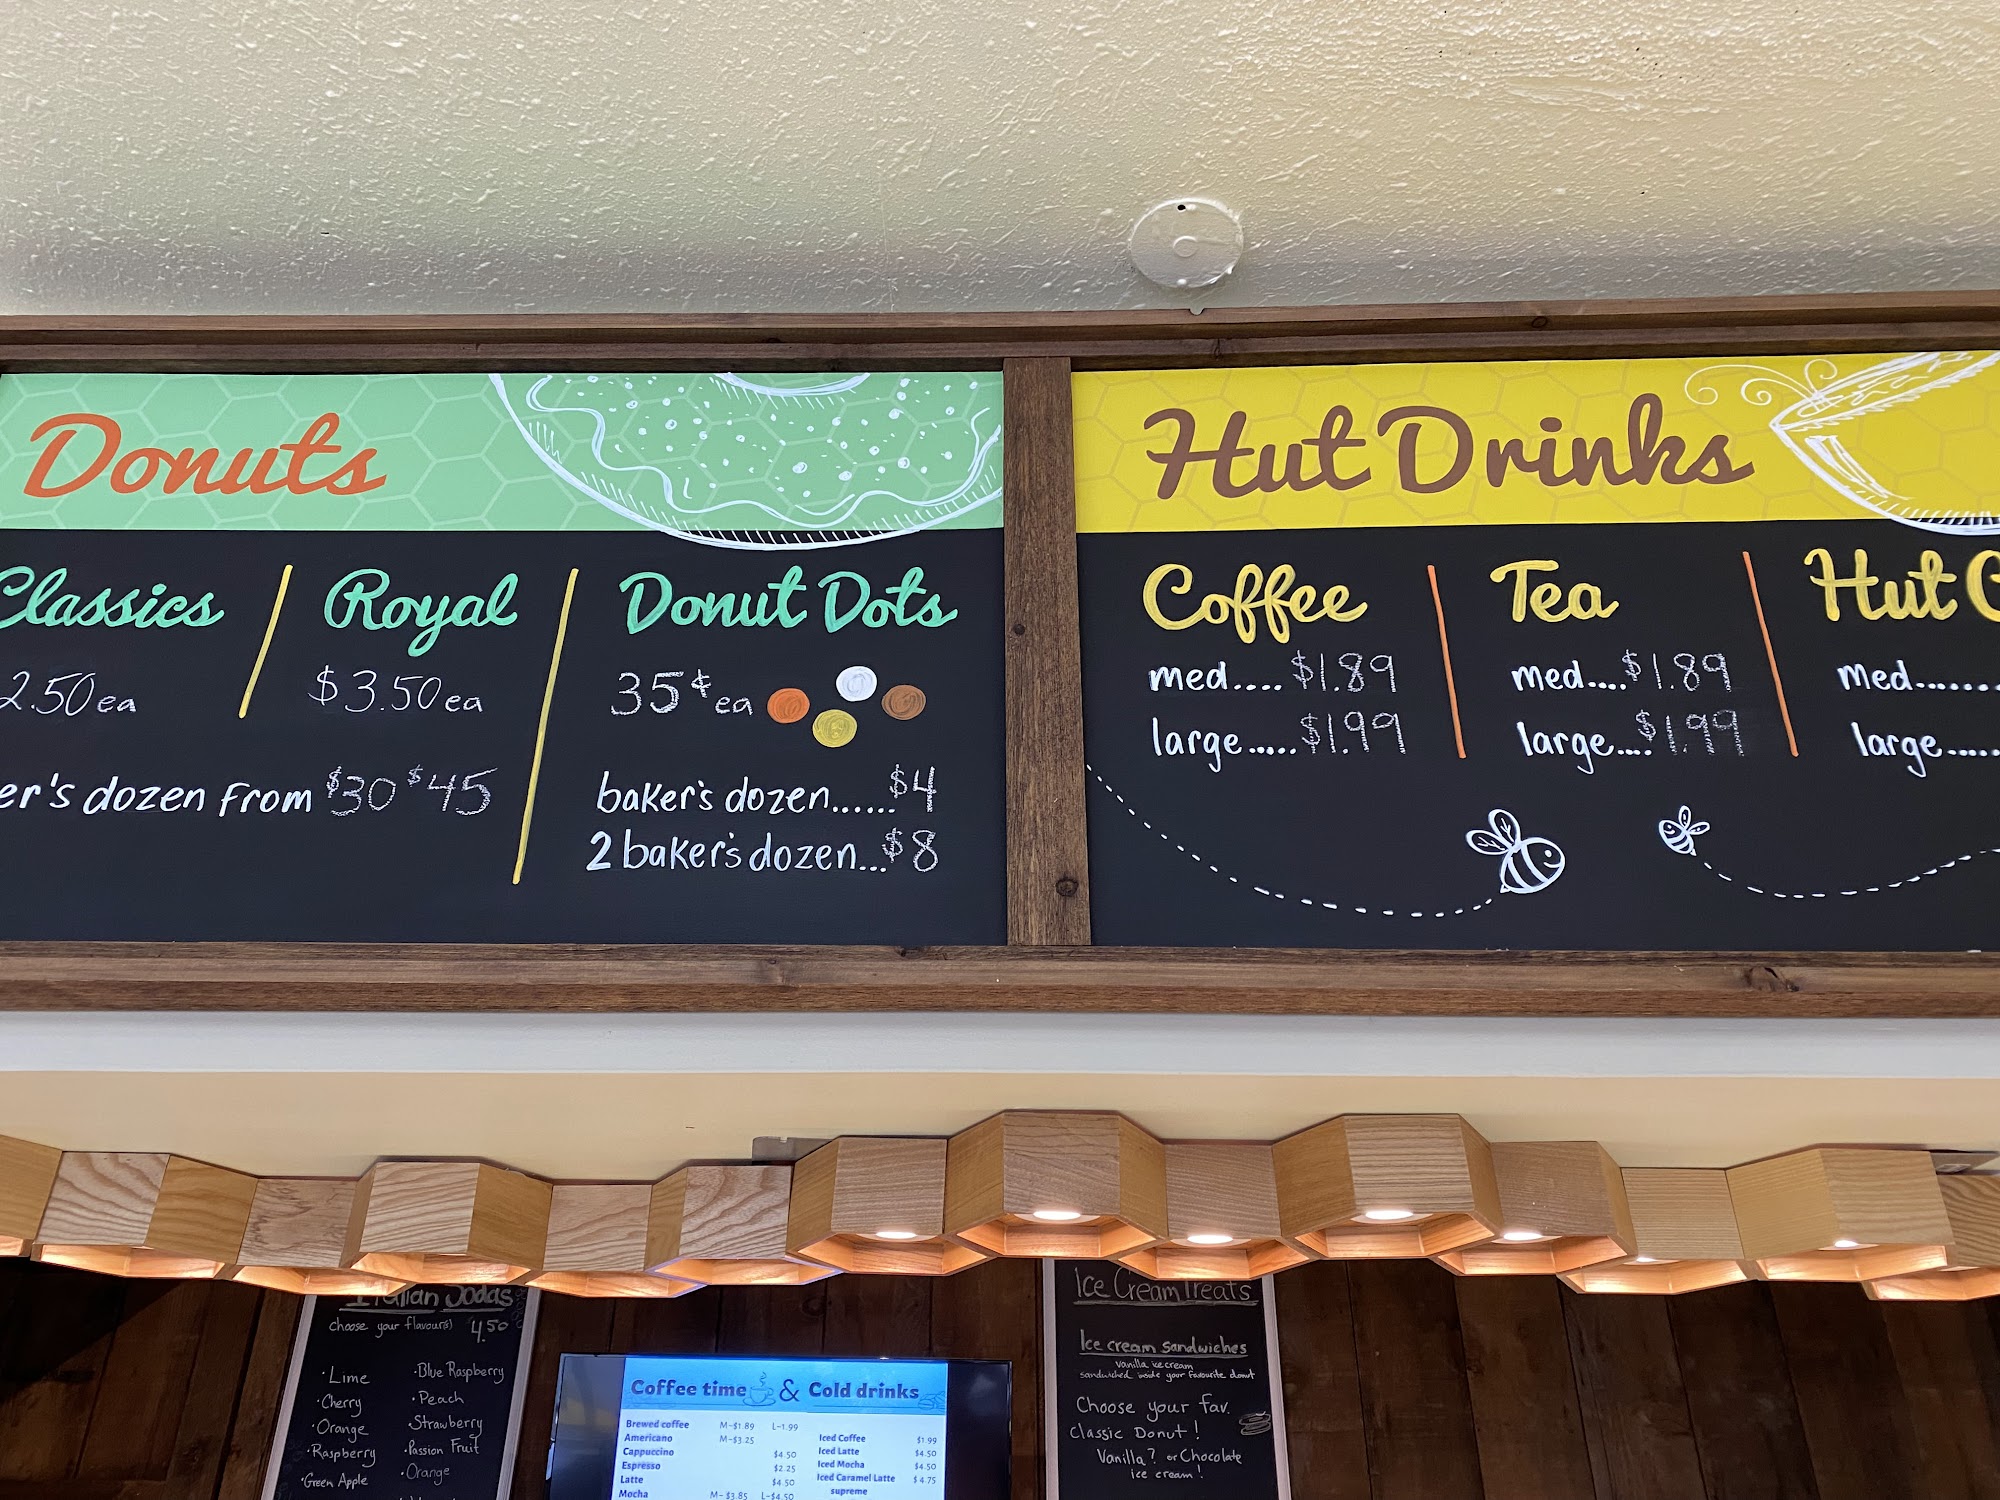 Donuts
Classics
2.50 ea
Royal
$3.50 ea
er's dozen from $30 $45
Donut Dots
35¢ ea
baker's dozen......$4
2 baker's dozen...$8
Hut Drinks
Coffee
med.....$1.89
large.....$1.99
Tea
med....$1.89
large....$1.99
Hut C
med.......
large......
Italian Sodas
choose your flavour(s) 4.50
· Lime
· Cherry
· Orange
· Raspberry
· Green Apple
· Blue Raspberry
· Peach
· Strawberry
· Passion Fruit
· Orange
Coffee time & Cold drinks
Brewed coffee M-$1.89 L-1.99
Americano M-$3.25
Cappuccino $4.50
Espresso $2.25
Latte $4.50
Mocha M-$3.85 L-$4.50
Iced Coffee $1.99
Iced Latte $4.50
Iced Mocha $4.50
Iced Caramel Latte $4.75
supreme
Ice Cream Treats
Ice cream sandwiches
vanilla ice cream
sandwiched inside your favourite donut
Choose your fav.
Classic Donut!
Vanilla? or Chocolate
ice cream!